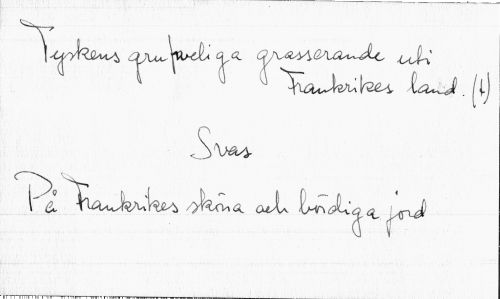 Tyskens grufweliga grasserande uti
Frankrikes land. (t)
Svas
På Frankrikes sköna och bördiga jord